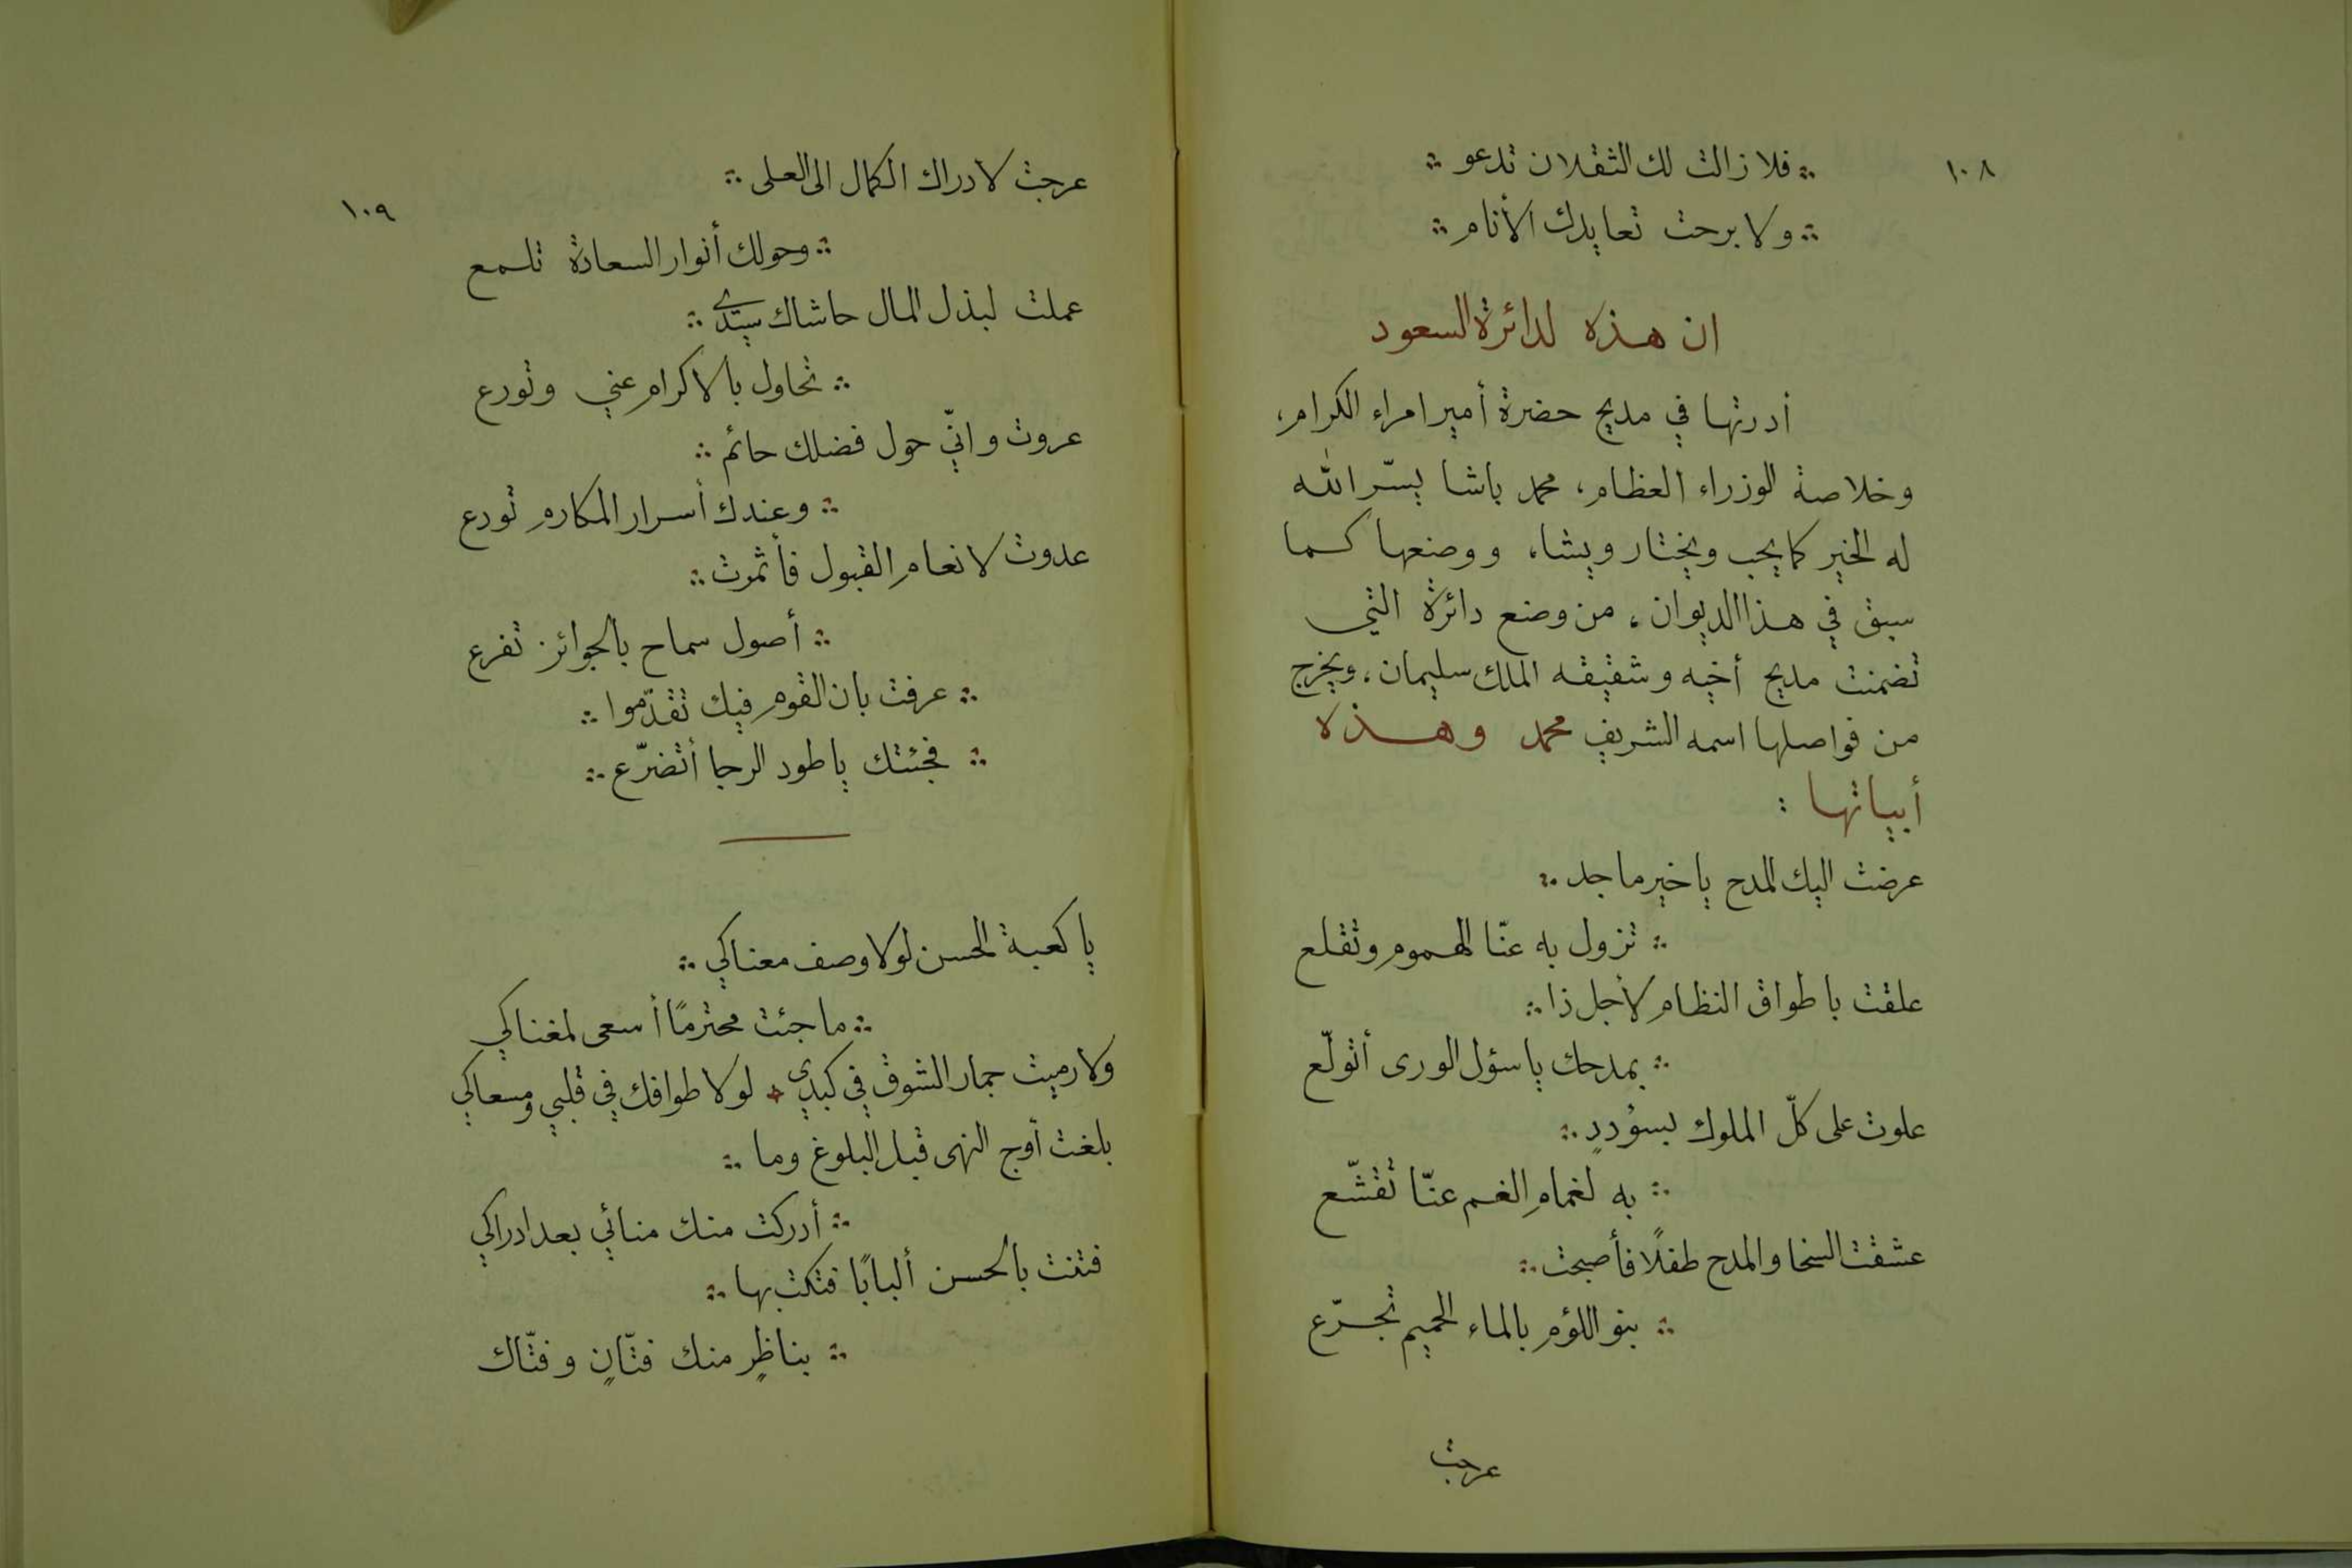 ١٠٨
فلا زالت لك الثقلان تدعو
ولا برحت تعايدك الأنام
ان هذه لدائرة السعود
أدرتها في مديح حضرة أمير امراء الكرام،
وخلاصة الوزراء العظام، محمد باشا يسّر الله
له الخير كما يحب ويختار ويشاء، ووضعها كما
سبق في هذا الديوان، من وضع دائرة التي
تضمنت مديح أخيه وشقيقه الملك سليمان، ويخرج
من فواصلها اسمه الشريف محمد وهذه
أبياتها :
عرضت اليك المدح يا خير ماجد
تزول به عنّا الهموم وتقلع
علقت باطواق النظام لأجل ذا
بمدحك يا سؤل الورى أتولّع
علوت على كلّ الملوك بسؤددٍ
به لغمام الغم عنّا تقشّع
عشقت السخا والمدح طفلًا فأصبحت
بنو اللؤم بالماء الحميم تجرّع
عرجت
١٠٩
عرجت لادراك الكمال الى العلى
وحولك أنوار السعادة تلمع
عملت لبذل المال حاشاك سيّدي
تحاول بالاكرام عني وتورع
عروت وانّي حول فضلك حائم
وعندك أسرار المكارم تودع
عدوت لانعام القبول فأثمرت
أصول سماح بالجوائز تفرع
عرفت بان القوم فيك تقدّموا
فجئتك يا طود الرجا أتضرّع
يا كعبة الحسن لولا وصف معناكي
ما جئت محترمًا أسعى لمغناكي
ولا رميت جمار الشوق في كبدي لولا طوافك في قلبي ومسعاكي
بلغت أوج النهى قبل البلوغ وما
أدركت منك منائي بعد ادراكي
فتنت بالحسن ألبابًا فتكت بها
بناظرٍ منك فتّانٍ وفتّاك